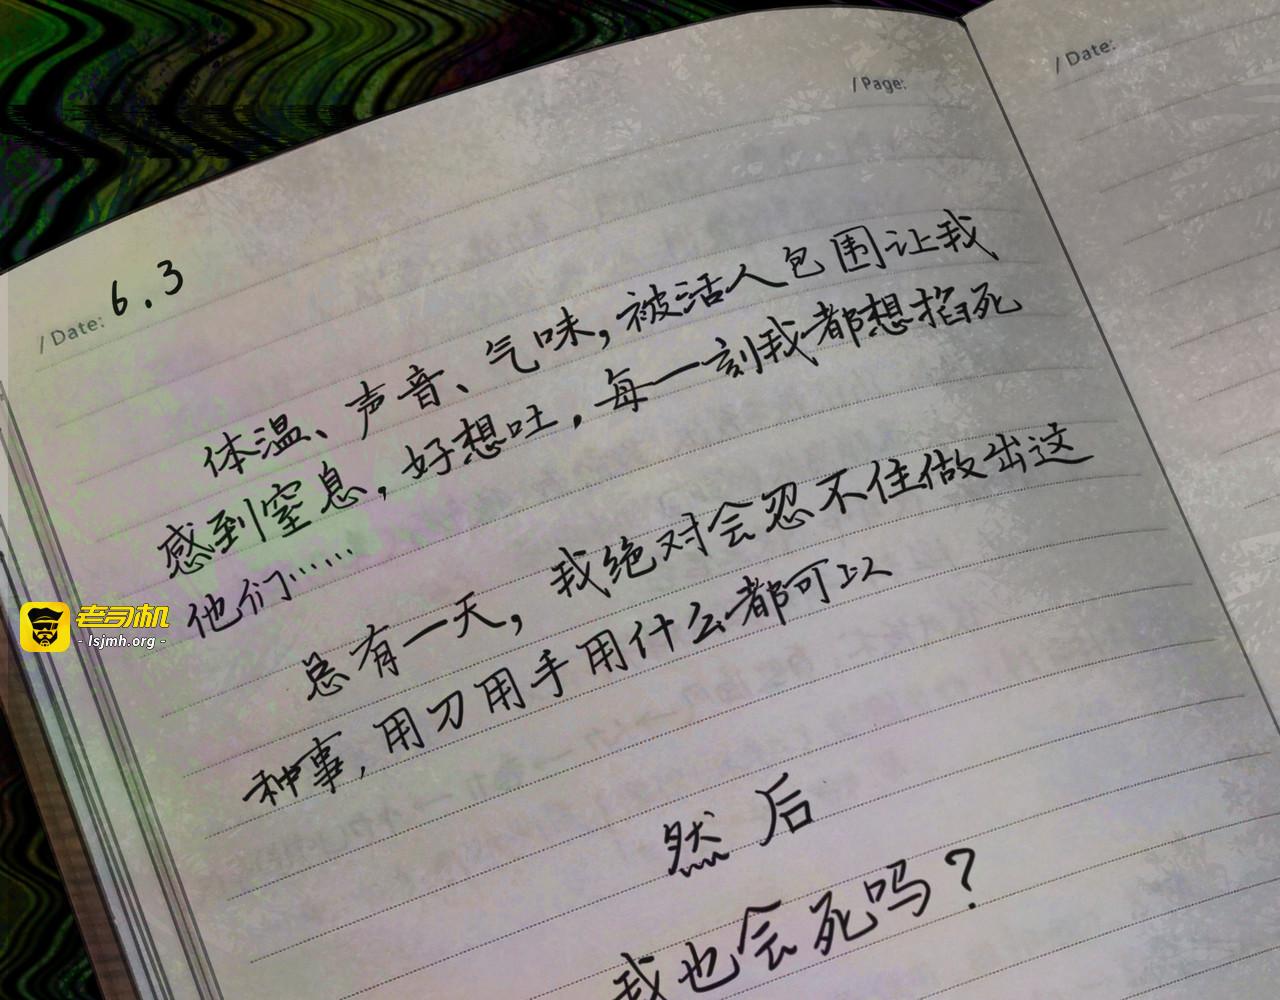 / Page:
/ Date:
/ Date: 6.3
体温、声音、气味,被活人包围让我
感到窒息,好想吐,每一刻我都想掐死
他们……
总有一天,我绝对会忍不住做出这
种事,用刀用手用什么都可以
然后
我也会死吗?
老司机
- lsjmh.org -